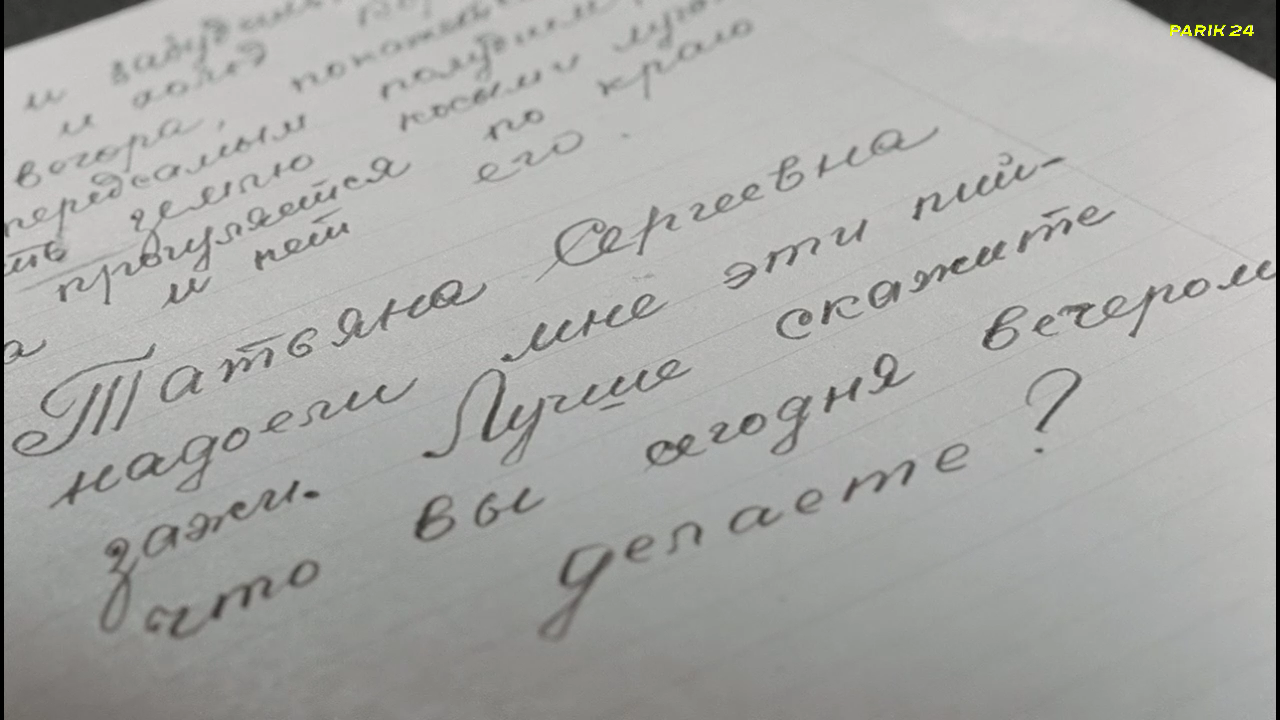 PARIK 24
и забудешь
и холод
вогора, покатые
передсамым полуднем
землю косыми
прогуляется по краю
и нет его.
Татьяна Сергеевна
надоели мне эти пий-
зажи. Лучше скажите
что вы сегодня вечером
делаете?